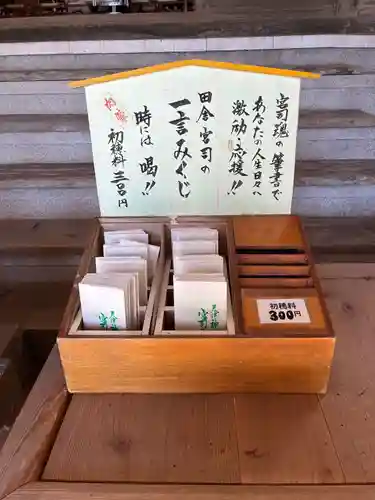 宮司魂の筆書で
あなたの人生日々
激励・応援!!
田舎宮司の
一言みくじ
時には喝!!
初穂料三百円
初穂料
300円